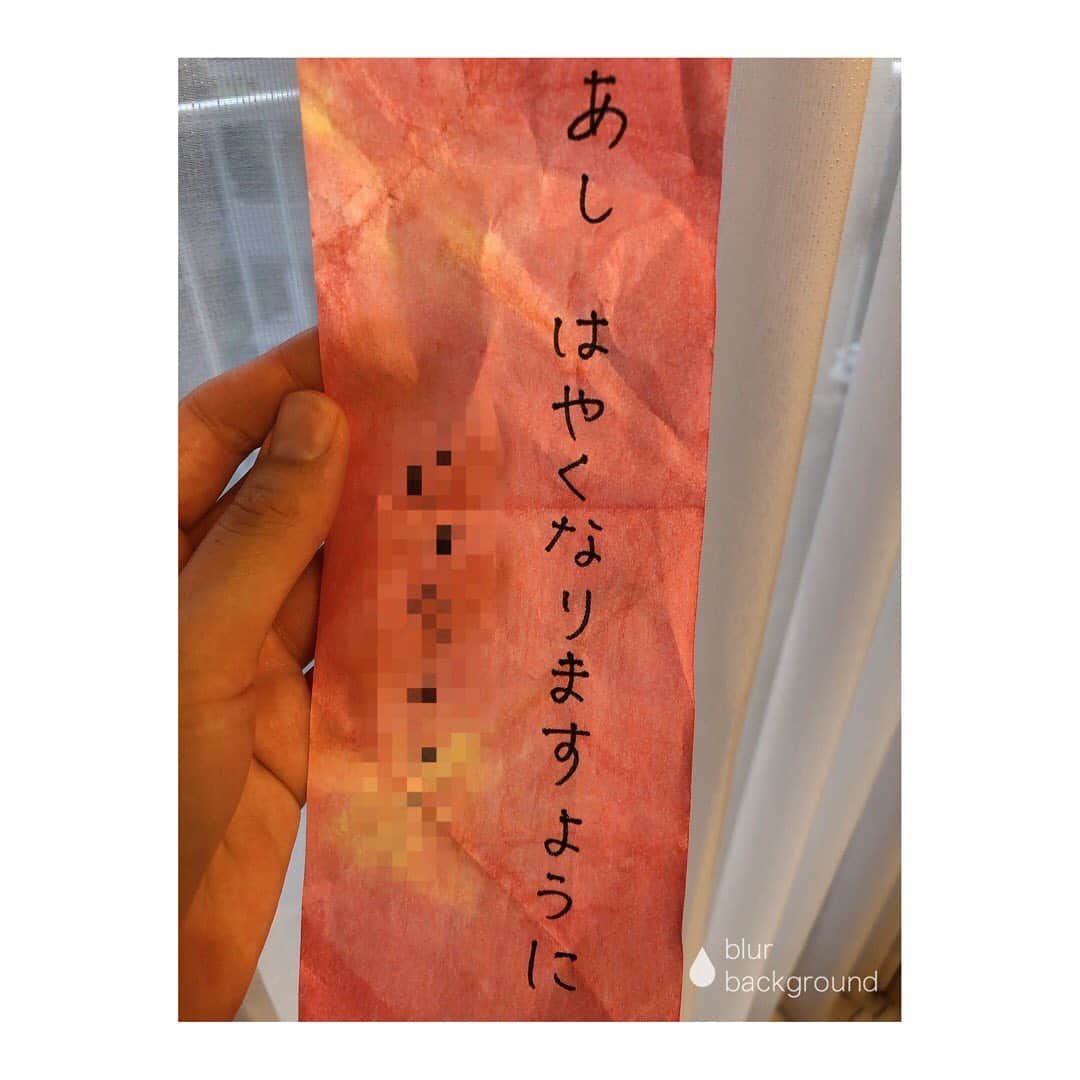 あし はやくなりますように
blur
background